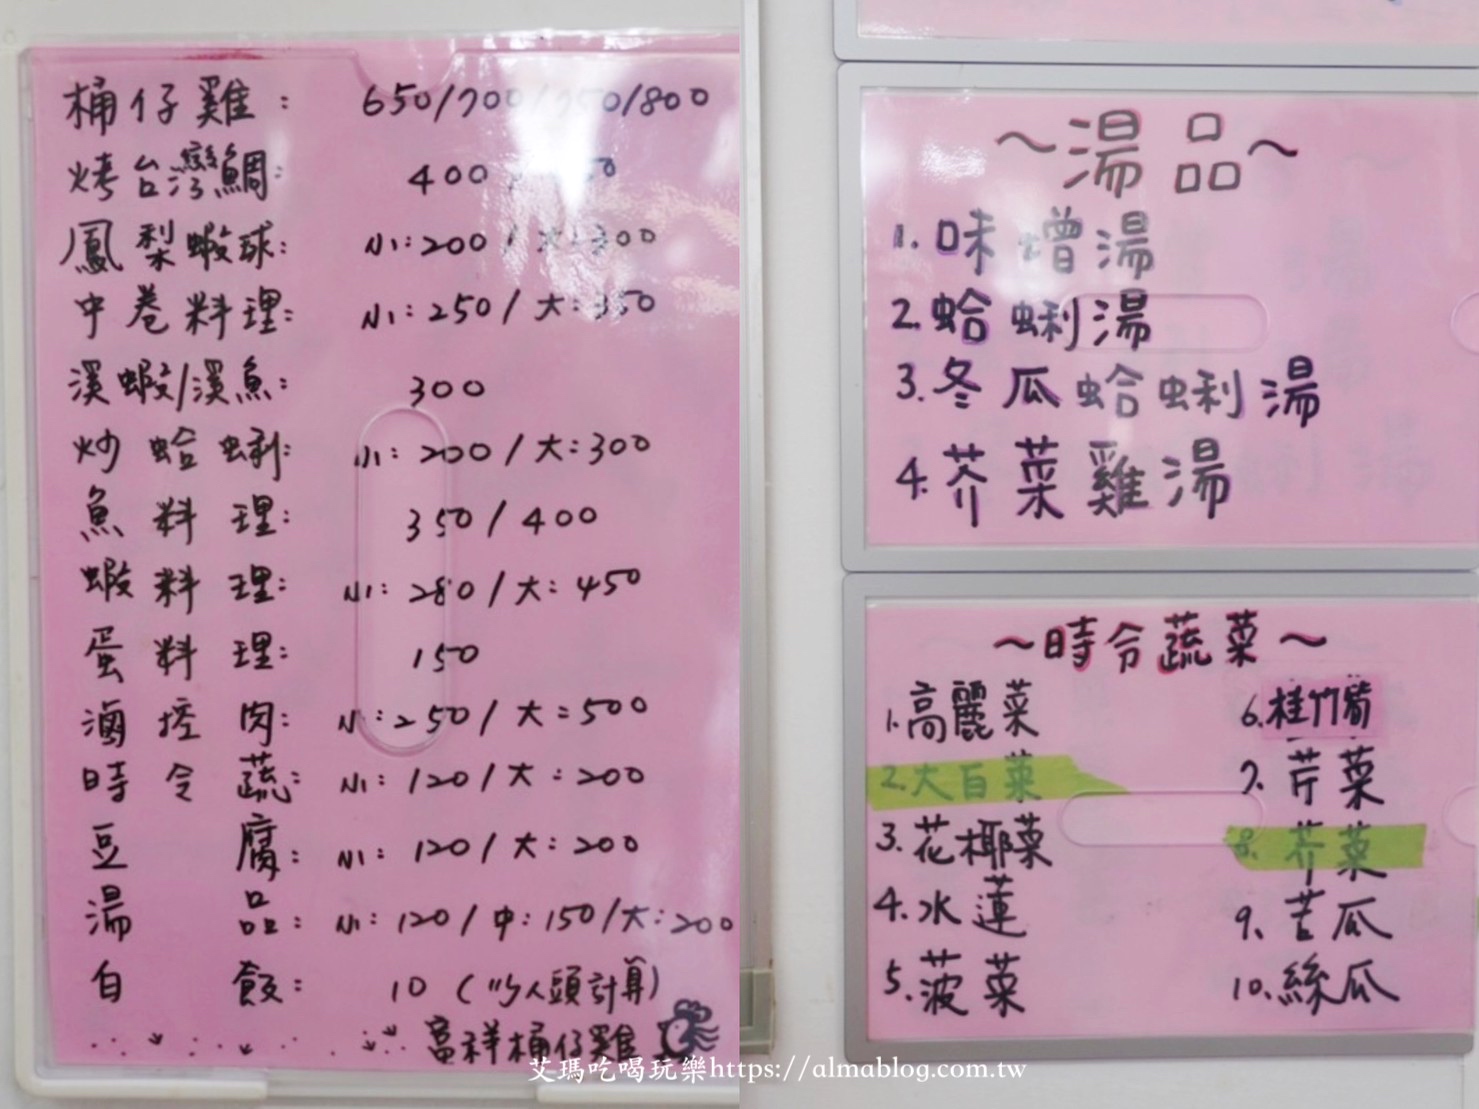 桶仔雞: 650/700/750/800
烤台灣鯛: 400
鳳梨蝦球: 小:200/大:300
中卷料理: 小:250/大:350
溪蝦/溪魚: 300
炒蛤蜊: 小:200/大:300
魚料理: 350/400
蝦料理: 小:280/大:450
蛋料理: 150
滷控肉: 小:250/大:500
時令蔬: 小:120/大:200
豆腐: 小:120/大:200
湯品: 小:120/中:150/大:200
白飯: 10(以人頭計算)
富祥桶仔雞
~湯品~
1.味噌湯
2.蛤蜊湯
3.冬瓜蛤蜊湯
4.芥菜雞湯
~時令蔬菜~
1.高麗菜
2.大白菜
3.花椰菜
4.水蓮
5.菠菜
6.桂竹筍
7.芹菜
8.芥菜
9.苦瓜
10.絲瓜
艾瑪吃喝玩樂https://almablog.com.tw